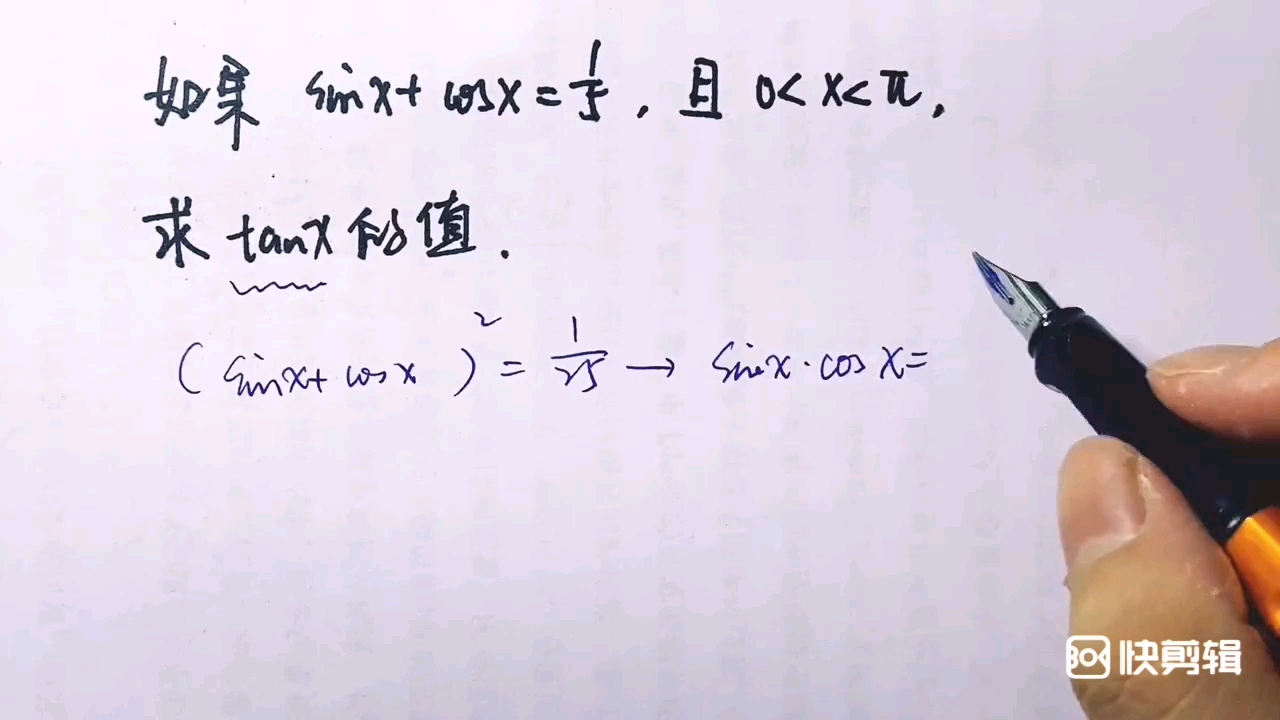 如果 sinx+cosx=1/5,且 0<x<π,
求 tanx 的值.
(sinx+cosx)²=1/25→sinx·cosx=
快剪辑